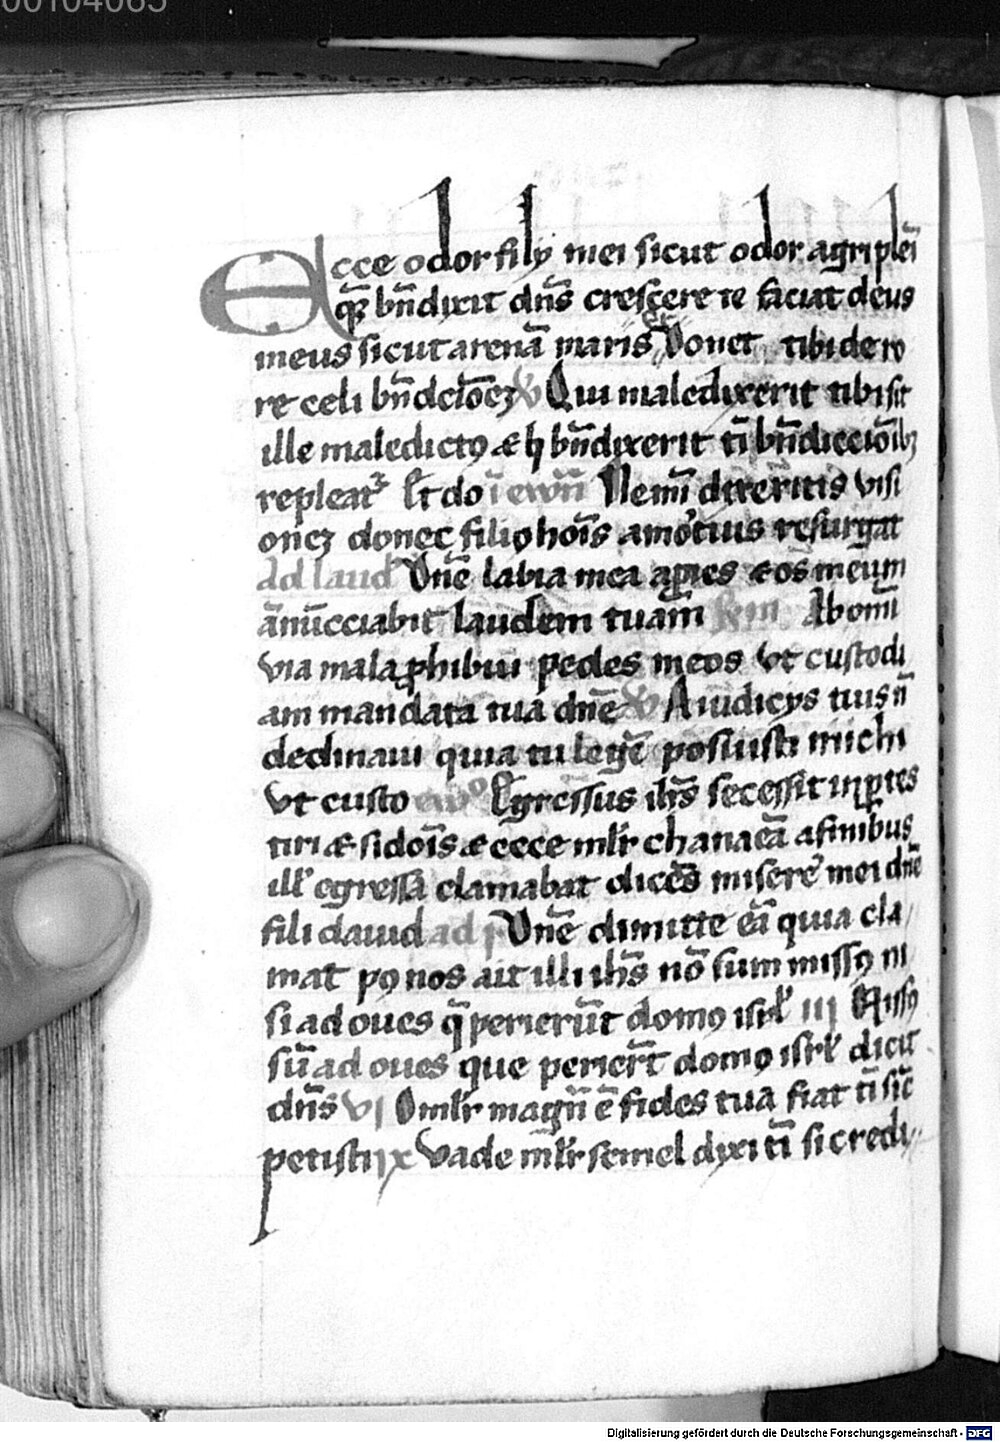 00104065
Ecce odor filÿ mei sicut odor agri plēi
qꝫ bn̄dixit dn̄s crescere te faciat deus
meus sicut arenā maris Donet tibi de ro
re celi bn̄dctōeꝫ v̄ Qui maledixerit tibi sit
ille maledictꝯ ⁊ q bn̄dixerit t̄i bn̄diccōibꝫ
repleatᷣ Et do ī ewn̄ Nemī dixerītis visi
oneꝫ donec filiꝯ hoīs a mortuis resurgat
Ad laud Dn̄e labia mea apies ⁊ os meum
ān̄ucciabit laudem tuam Ab omī
via mala ꝓhibui pedes meos vt custodi
am mandata tua dn̄e v̄ A iudicÿs tuis n̄
declinaui quia tu legē posuisti michi
vt custo ewº Egressus ih̄s secessit in ꝑtes
tiri ⁊ sidoīs ⁊ ecce mlr̄ chanaēa a finibus
ill' egressa clamabat dicēs misere mei dn̄e
fili dauid ad p Dn̄e dimitte eā quia cla
mat pꝯ nos ait illi ih̄s nō sum missꝯ ni
si ad oues q̄ perierūt domꝯ isrl' iij Missꝯ
sū ad oues que perier̄t domꝯ isrl' dicit
dn̄s vj O mlr̄ magn̄ ē fides tua fiat t̄i sic̄
petisti ix Vade ml̄r semel dixi t̄i si credi
Digitalisierung gefördert durch die Deutsche Forschungsgemeinschaft - DFG